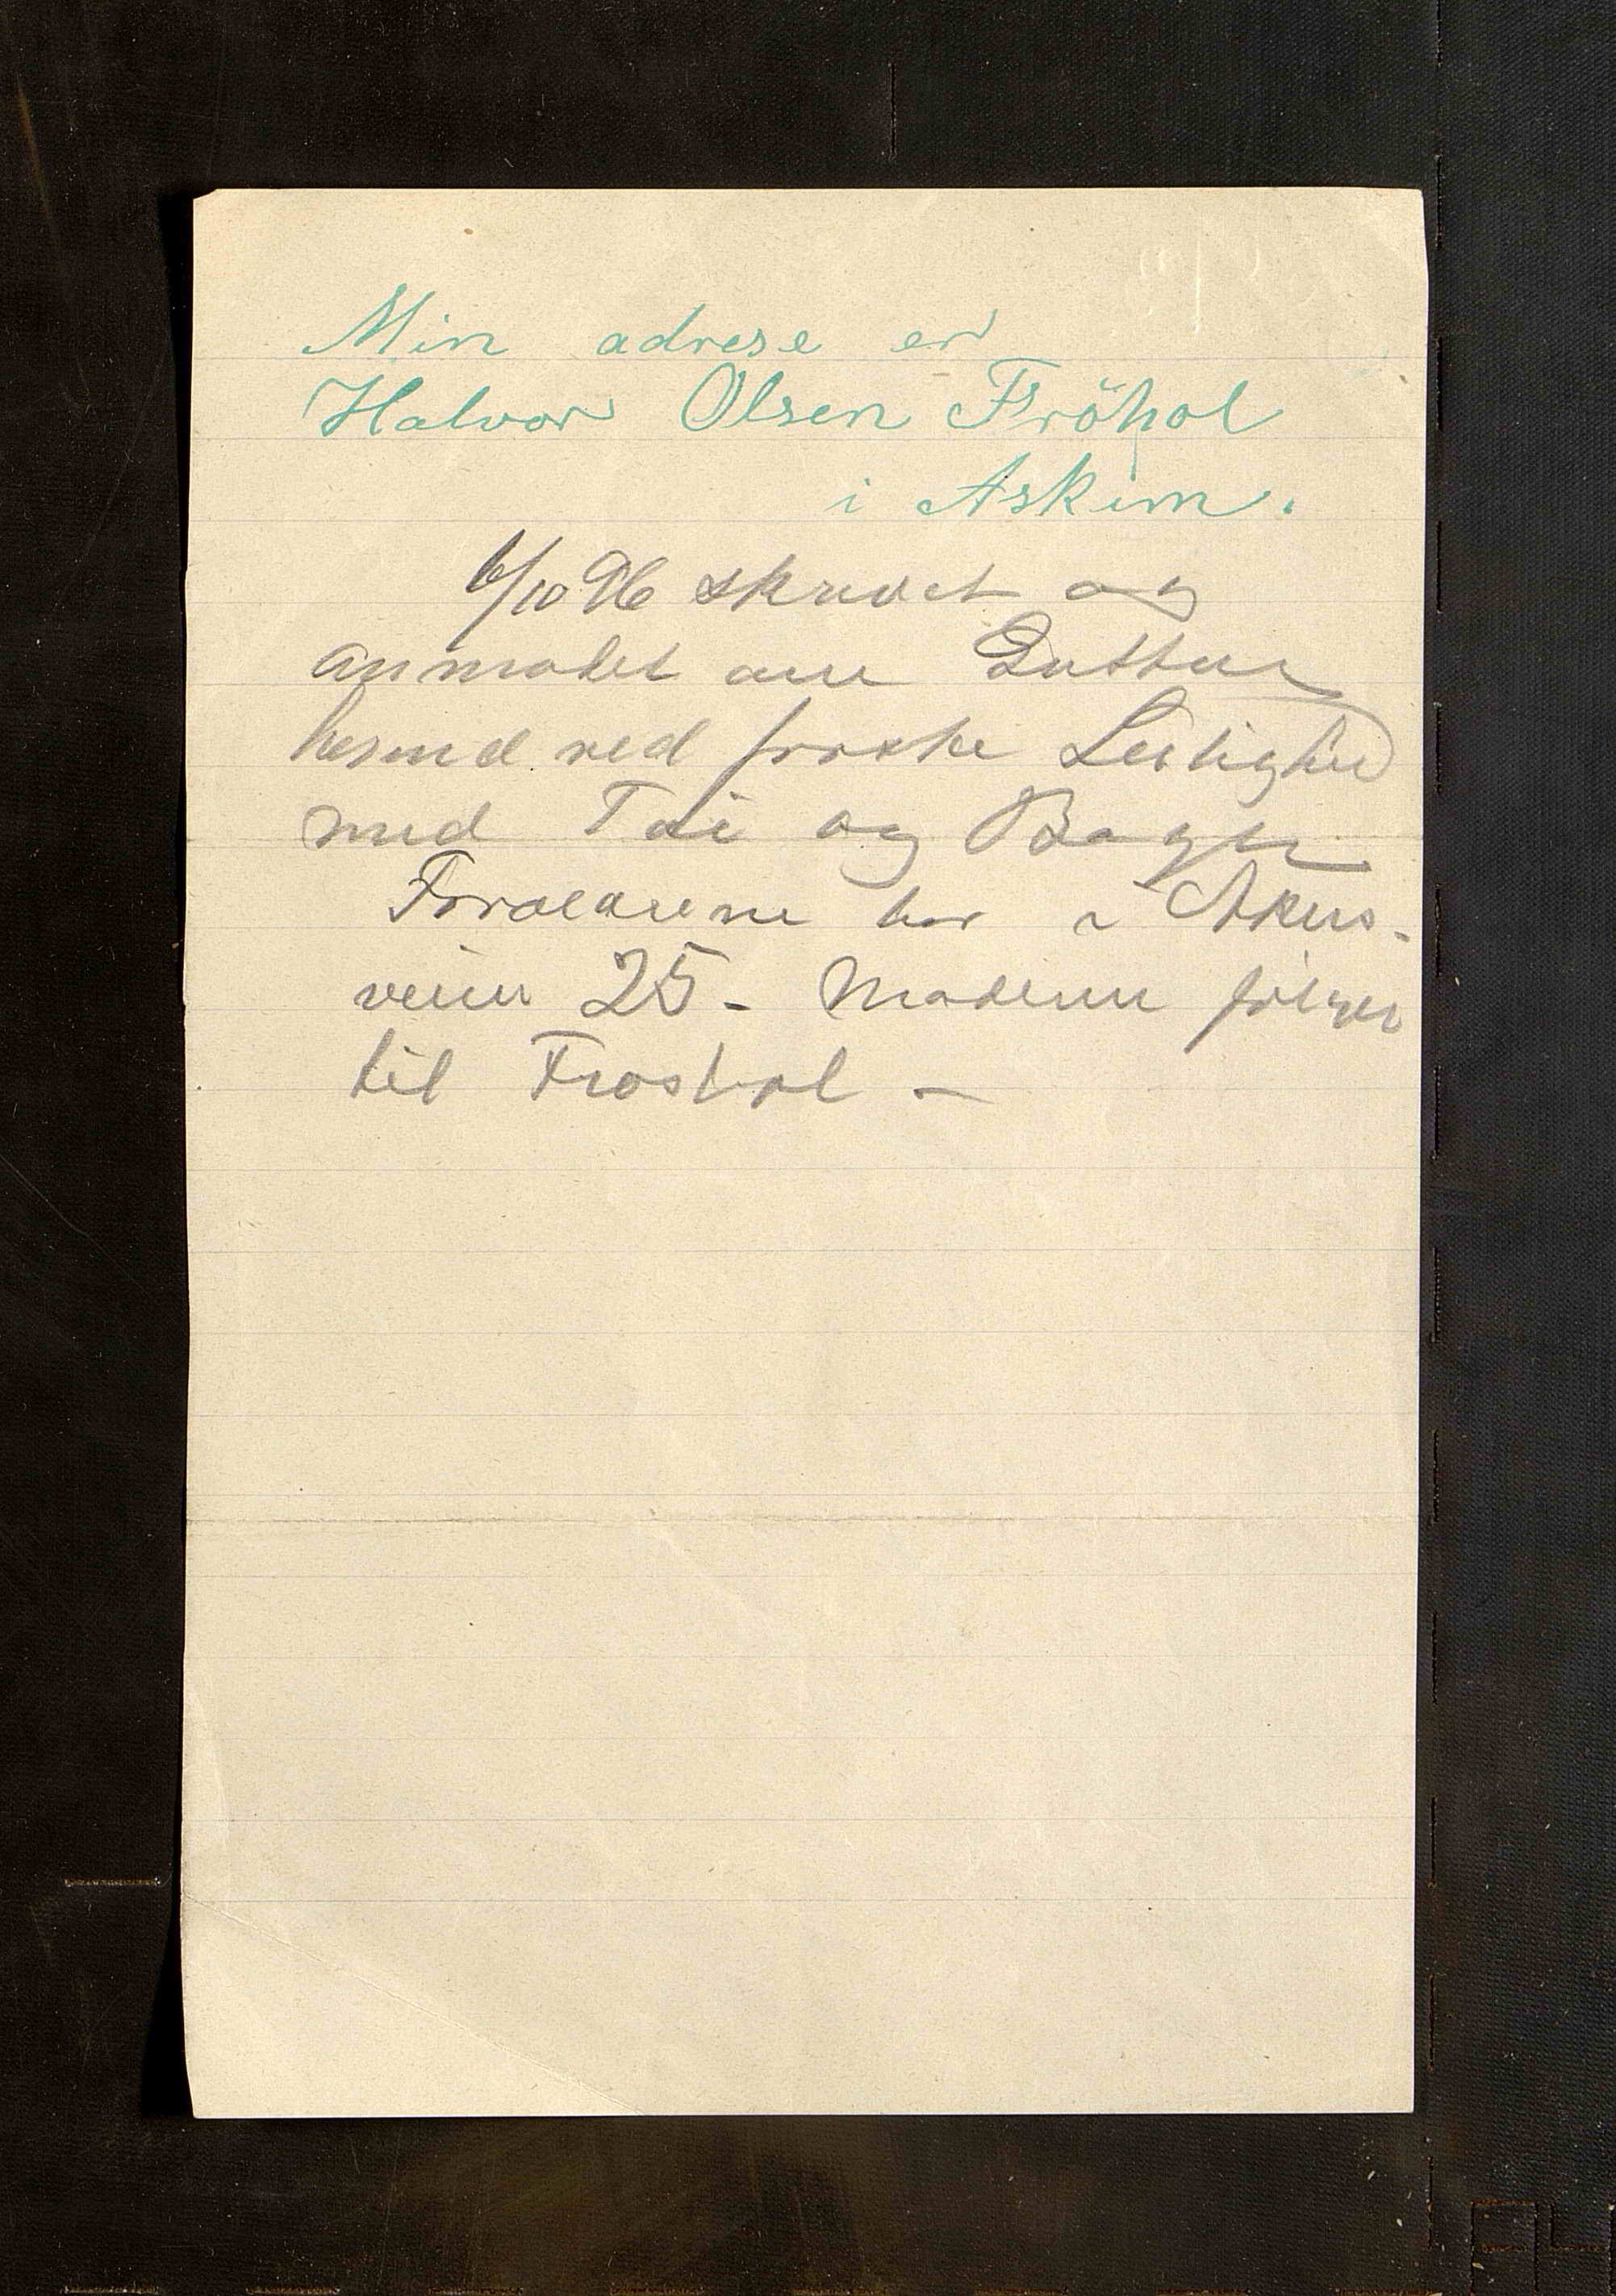 Min adrese er
Halvor Olsen Fröshol
i Askim.
6/10 96 skrevet og
anmodet om Gutten
hersend ved første Leilighed
med Tøi og Bøger
Forældrene bor i Akers-
veien 25 - Moderen følger
til Frøshol -